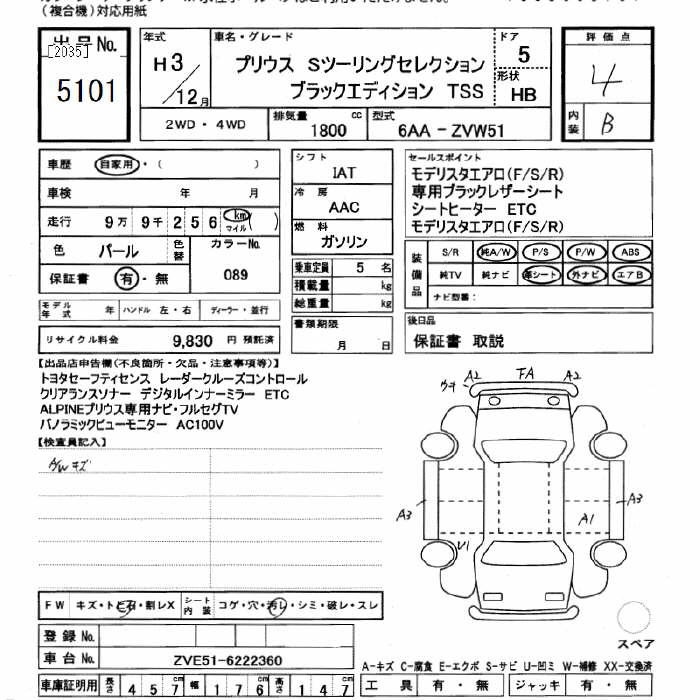 (複合機)対応用紙
出品No.
[2035]
5101
年式
H3/12月
車名・グレード
プリウス Sツーリングセレクション
ブラックエディション TSS
ドア
5
形状
HB
2WD・4WD
排気量
1800 cc
型式
6AA－ZVW51
評価点
4
内装
B
車歴 自家用・( )
車検 年 月
走行 9万 9千 2 5 6 km マイル ( )
色 パール 色替
カラーNo.
089
保証書 有・無
モデル年式 年 ハンドル 左・右 ディーラー・並行
リサイクル料金 9,830 円 預託済
シフト
IAT
冷房
AAC
燃料
ガソリン
乗車定員 5 名
積載量 kg
総重量 kg
書類期限
月 日
セールスポイント
モデリスタエアロ(F/S/R)
専用ブラックレザーシート
シートヒーター ETC
モデリスタエアロ(F/S/R)
装備品
S/R 純A/W P/S P/W ABS
純TV 純ナビ 革シート 外ナビ エアB
ナビ型番:
後日品
保証書 取説
【出品店申告欄(不良箇所・欠品・注意事項等)】
トヨタセーフティセンス レーダークルーズコントロール
クリアランスソナー デジタルインナーミラー ETC
ALPINEプリウス専用ナビ・フルセグTV
パノラミックビューモニター AC100V
【検査員記入】
A/W キズ
ウキ A2 FA A2
A3 A3
A1
U1
スペア
FW キズ・トビ石・割レX シート内装 コゲ・穴・汚レ・シミ・破レ・スレ
登録No.
車台No. ZVE51-6222360
A-キズ C-腐食 E-エクボ S-サビ U-凹ミ W-補修 XX-交換済
車庫証明用 長さ 4 5 7 幅 1 7 6 高さ 1 4 7
工具 有・無 ジャッキ 有・無